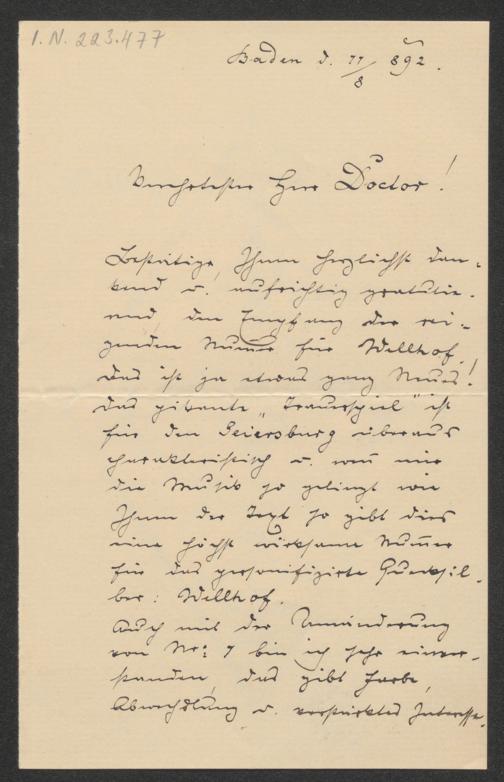 I. N. 223.477
Baden d. 11/8 892.
Verehrtester Herr Doctor!
Bestätige, Ihnen herzlichst dan-
kend u. aufrichtig gratulie-
rend den Empfang der rei-
zenden Num̅er für Wellhof.
Das ist ja etwas ganz Neues!
Das pikante „Trauerspiel" ist
für den Geiersburg überaus
charakteristisch u. wen̅ mir
die Musik so gelingt wie
Ihnen der Text so gibt dies
eine höchst wirksame Num̅er
für das personifizirte Quecksil-
ber: Wellhof.
Auch mit der Umänderung
von Nr: 7 bin ich sehr einver-
standen, das gibt Farbe,
Abwechslung u. verstärktes Interesse.